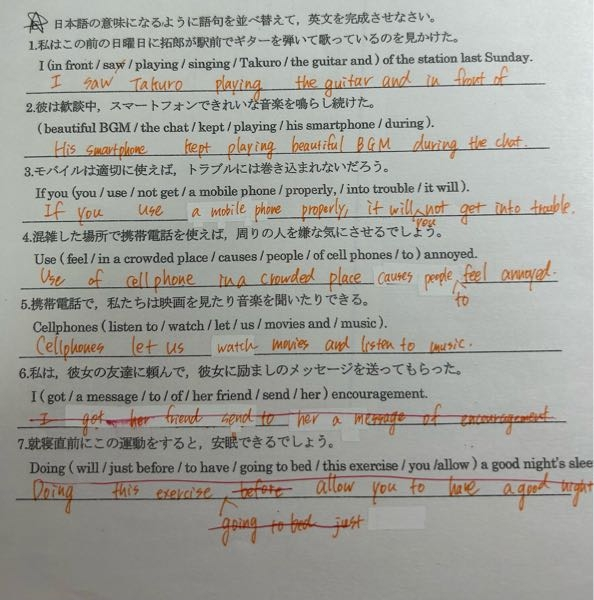 A 日本語の意味になるように語句を並べ替えて，英文を完成させなさい。
1.私はこの前の日曜日に拓郎が駅前でギターを弾いて歌っているのを見かけた。
I (in front / saw / playing / singing / Takuro / the guitar and ) of the station last Sunday.
I saw Takuro playing the guitar and in front of
2.彼は歓談中，スマートフォンできれいな音楽を鳴らし続けた。
(beautiful BGM / the chat / kept / playing / his smartphone / during ).
His smartphone kept playing beautiful BGM during the chat.
3.モバイルは適切に使えば，トラブルには巻き込まれないだろう。
If you (you / use / not get / a mobile phone / properly, / into trouble / it will ).
If you use a mobile phone properly, it will not get into trouble.
you
4.混雑した場所で携帯電話を使えば，周りの人を嫌な気にさせるでしょう。
Use (feel / in a crowded place / causes / people / of cell phones / to ) annoyed.
Use of cell phone in a crowded place causes people feel annoyed.
to
5.携帯電話で，私たちは映画を見たり音楽を聞いたりできる。
Cellphones ( listen to / watch / let / us / movies and / music ).
Cellphones let us watch movies and listen to music.
6.私は，彼女の友達に頼んで，彼女に励ましのメッセージを送ってもらった。
I ( got / a message / to / of / her friend / send / her ) encouragement.
I got her friend send to her a message of encouragement
7.就寝直前にこの運動をすると，安眠できるでしょう。
Doing ( will / just before / to have / going to bed / this exercise / you /allow ) a good night's slee
Doing this exercise before allow you to have a good night
going to bed just